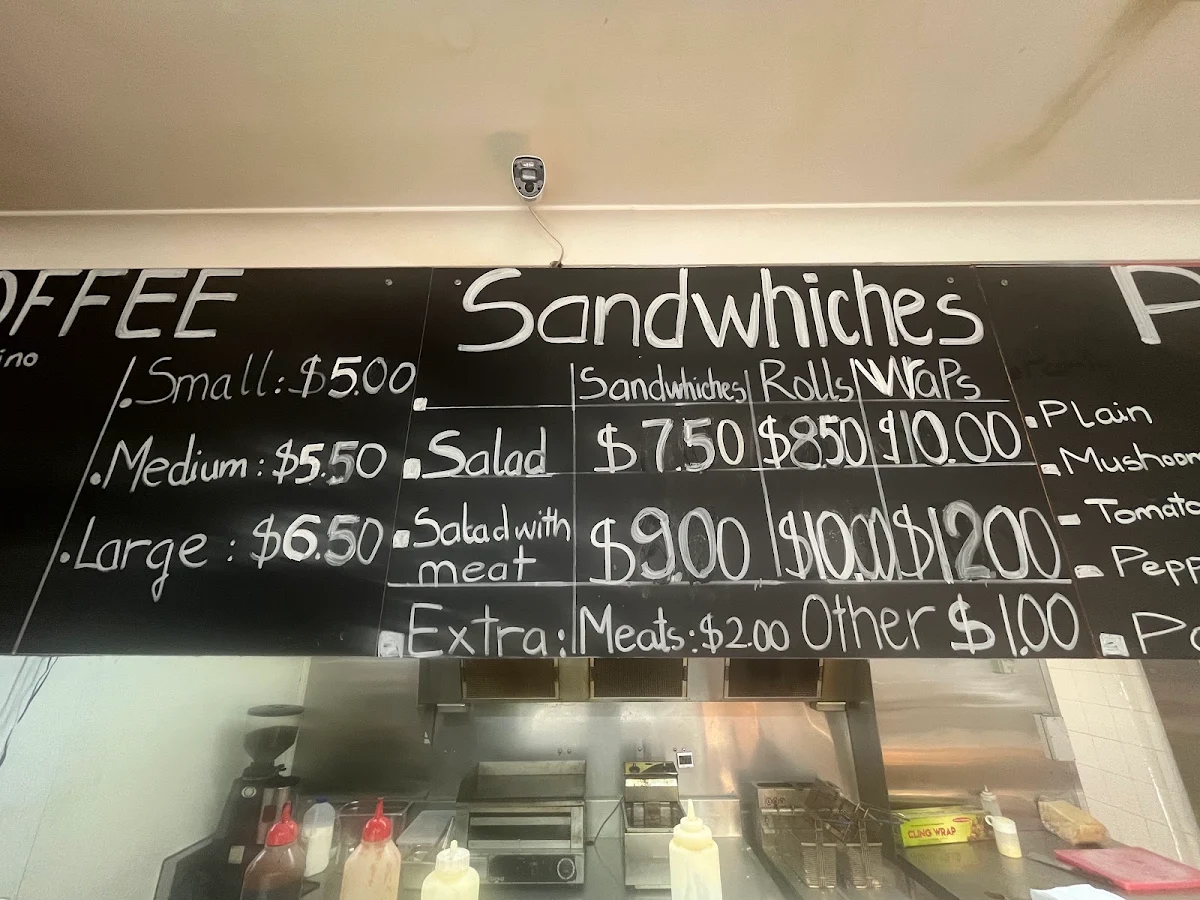 OFFEE
ino
Small: $5.00
Medium: $5.50
Large: $6.50
Sandwhiches
Sandwhiches Rolls Wraps
Salad $7.50 $8.50 $10.00
Salad with meat $9.00 $10.00 $12.00
Extra: Meats: $2.00 Other $1.00
P
Plain
Mushoom
Tomato
Pepp
Po
CLING WRAP